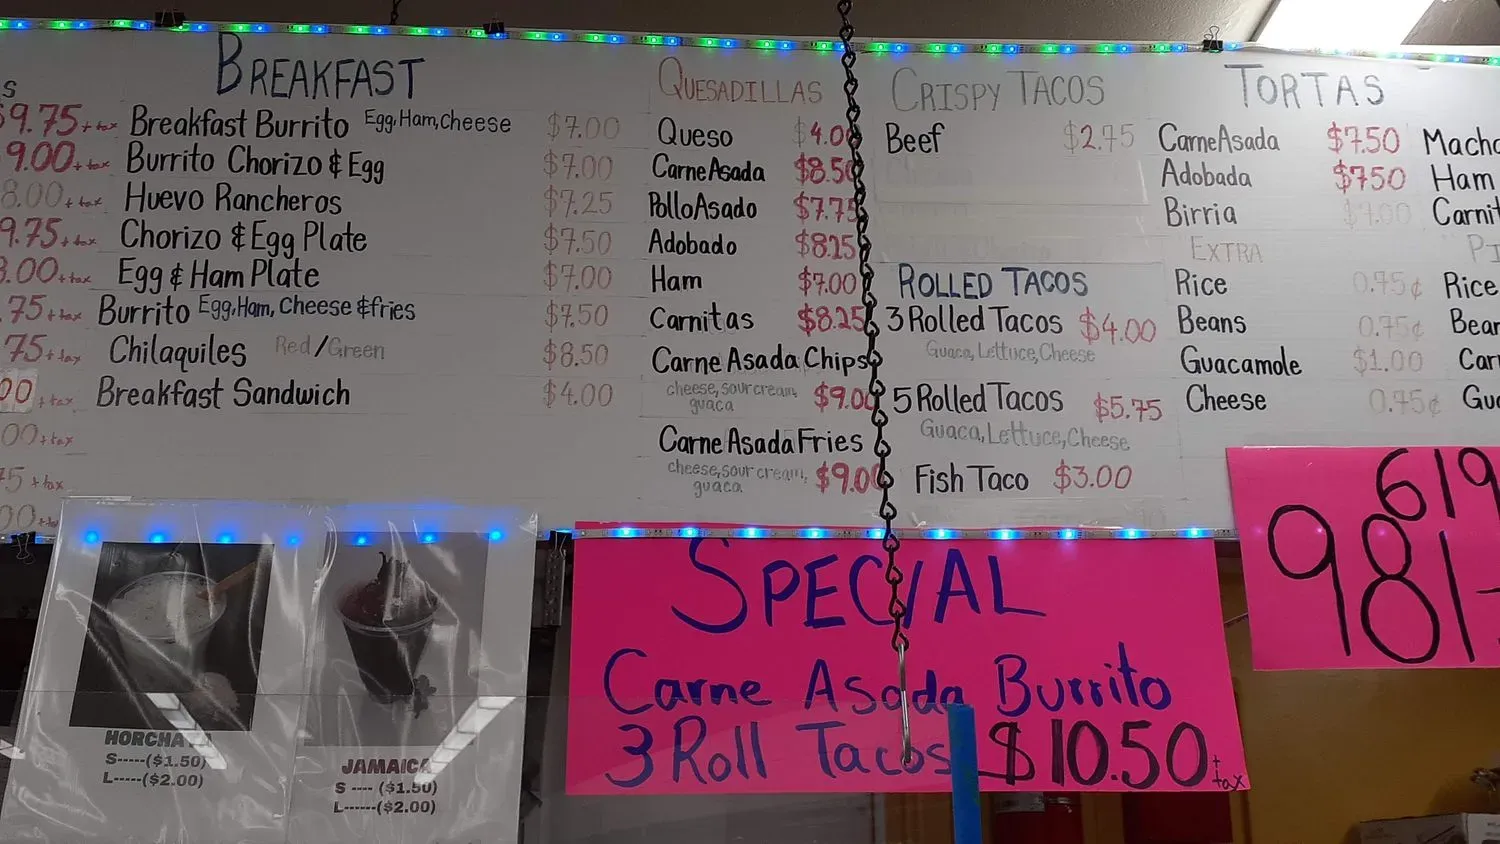 S
$9.75 + tax
9.00 + tax
8.00 + tax
9.75 + tax
8.00 + tax
.75 + tax
75 + tax
00 + tax
00 + tax
5 + tax
00 + tax
BREAKFAST
Breakfast Burrito Egg, Ham, Cheese $7.00
Burrito Chorizo & Egg $7.00
Huevo Rancheros $7.25
Chorizo & Egg Plate $7.50
Egg & Ham Plate $7.00
Burrito Egg, Ham, Cheese & fries $7.50
Chilaquiles Red/Green $8.50
Breakfast Sandwich $4.00
QUESADILLAS
Queso $4.00
Carne Asada $8.50
Pollo Asado $7.75
Adobado $8.25
Ham $7.00
Carnitas $8.25
Carne Asada Chips
cheese, sour cream, $9.00
guaca
Carne Asada Fries
cheese, sour cream, $9.00
guaca
CRISPY TACOS
Beef $2.75
ROLLED TACOS
3 Rolled Tacos $4.00
Guaca, Lettuce, Cheese
5 Rolled Tacos $5.75
Guaca, Lettuce, Cheese
Fish Taco $3.00
TORTAS
Carne Asada $7.50
Adobada $7.50
Birria $7.00
EXTRA
Rice 0.75¢
Beans 0.75¢
Guacamole $1.00
Cheese 0.75¢
Macha
Ham
Carnit
PI
Rice
Bear
Car
Gu
HORCHATA
S-----($1.50)
L-----($2.00)
JAMAICA
S ---- ($1.50)
L------($2.00)
SPECIAL
Carne Asada Burrito
3 Roll Tacos $10.50 + tax
619
981-